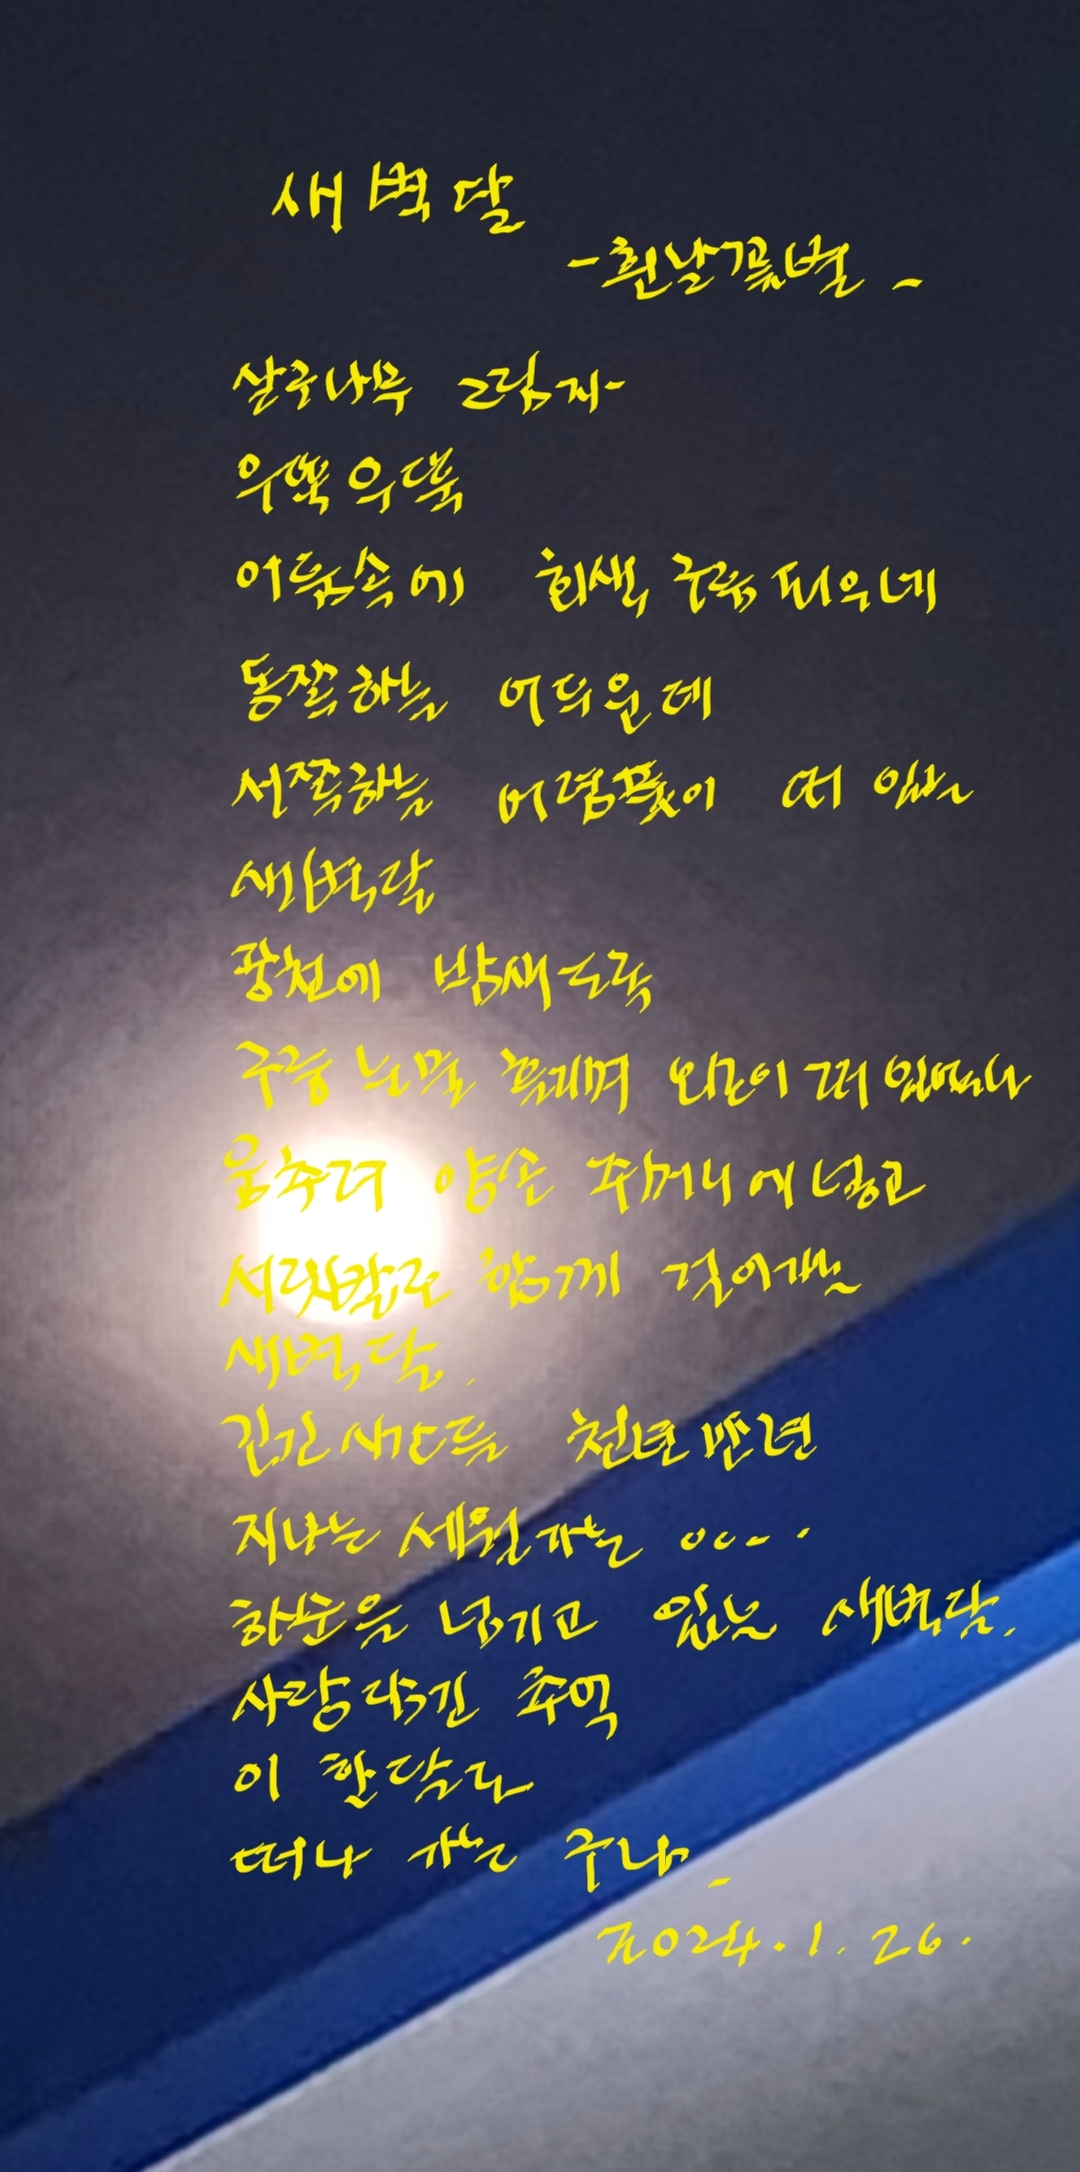 새벽달
-흰날꽃별-
살구나무 그림자
우뚝 우뚝
어둠속에 회색 구름 피우네
동쪽하늘 어두운데
서쪽하늘 어렴풋이 떠 있는
새벽달
광천에 밤새도록
구름 눈물 외로이 떠 있었으나
움추려 양손 주머니에 넣고
서릿발로 함께 걷어가는
새벽달.
긴긴 시간들 천년만년
지나는 세월가는
한순을 넘기고 있는 새벽달.
사랑 담긴 추억
이 한달도
떠나 가는 구나
2024.1.26.